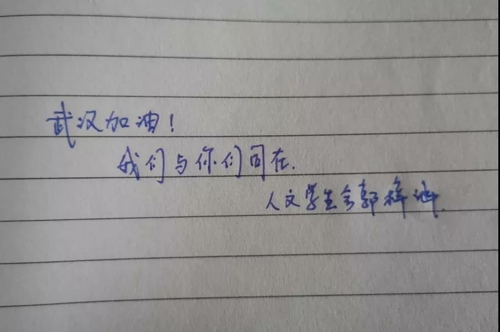 武汉加油！
我们与你们同在.
人文学生会郭